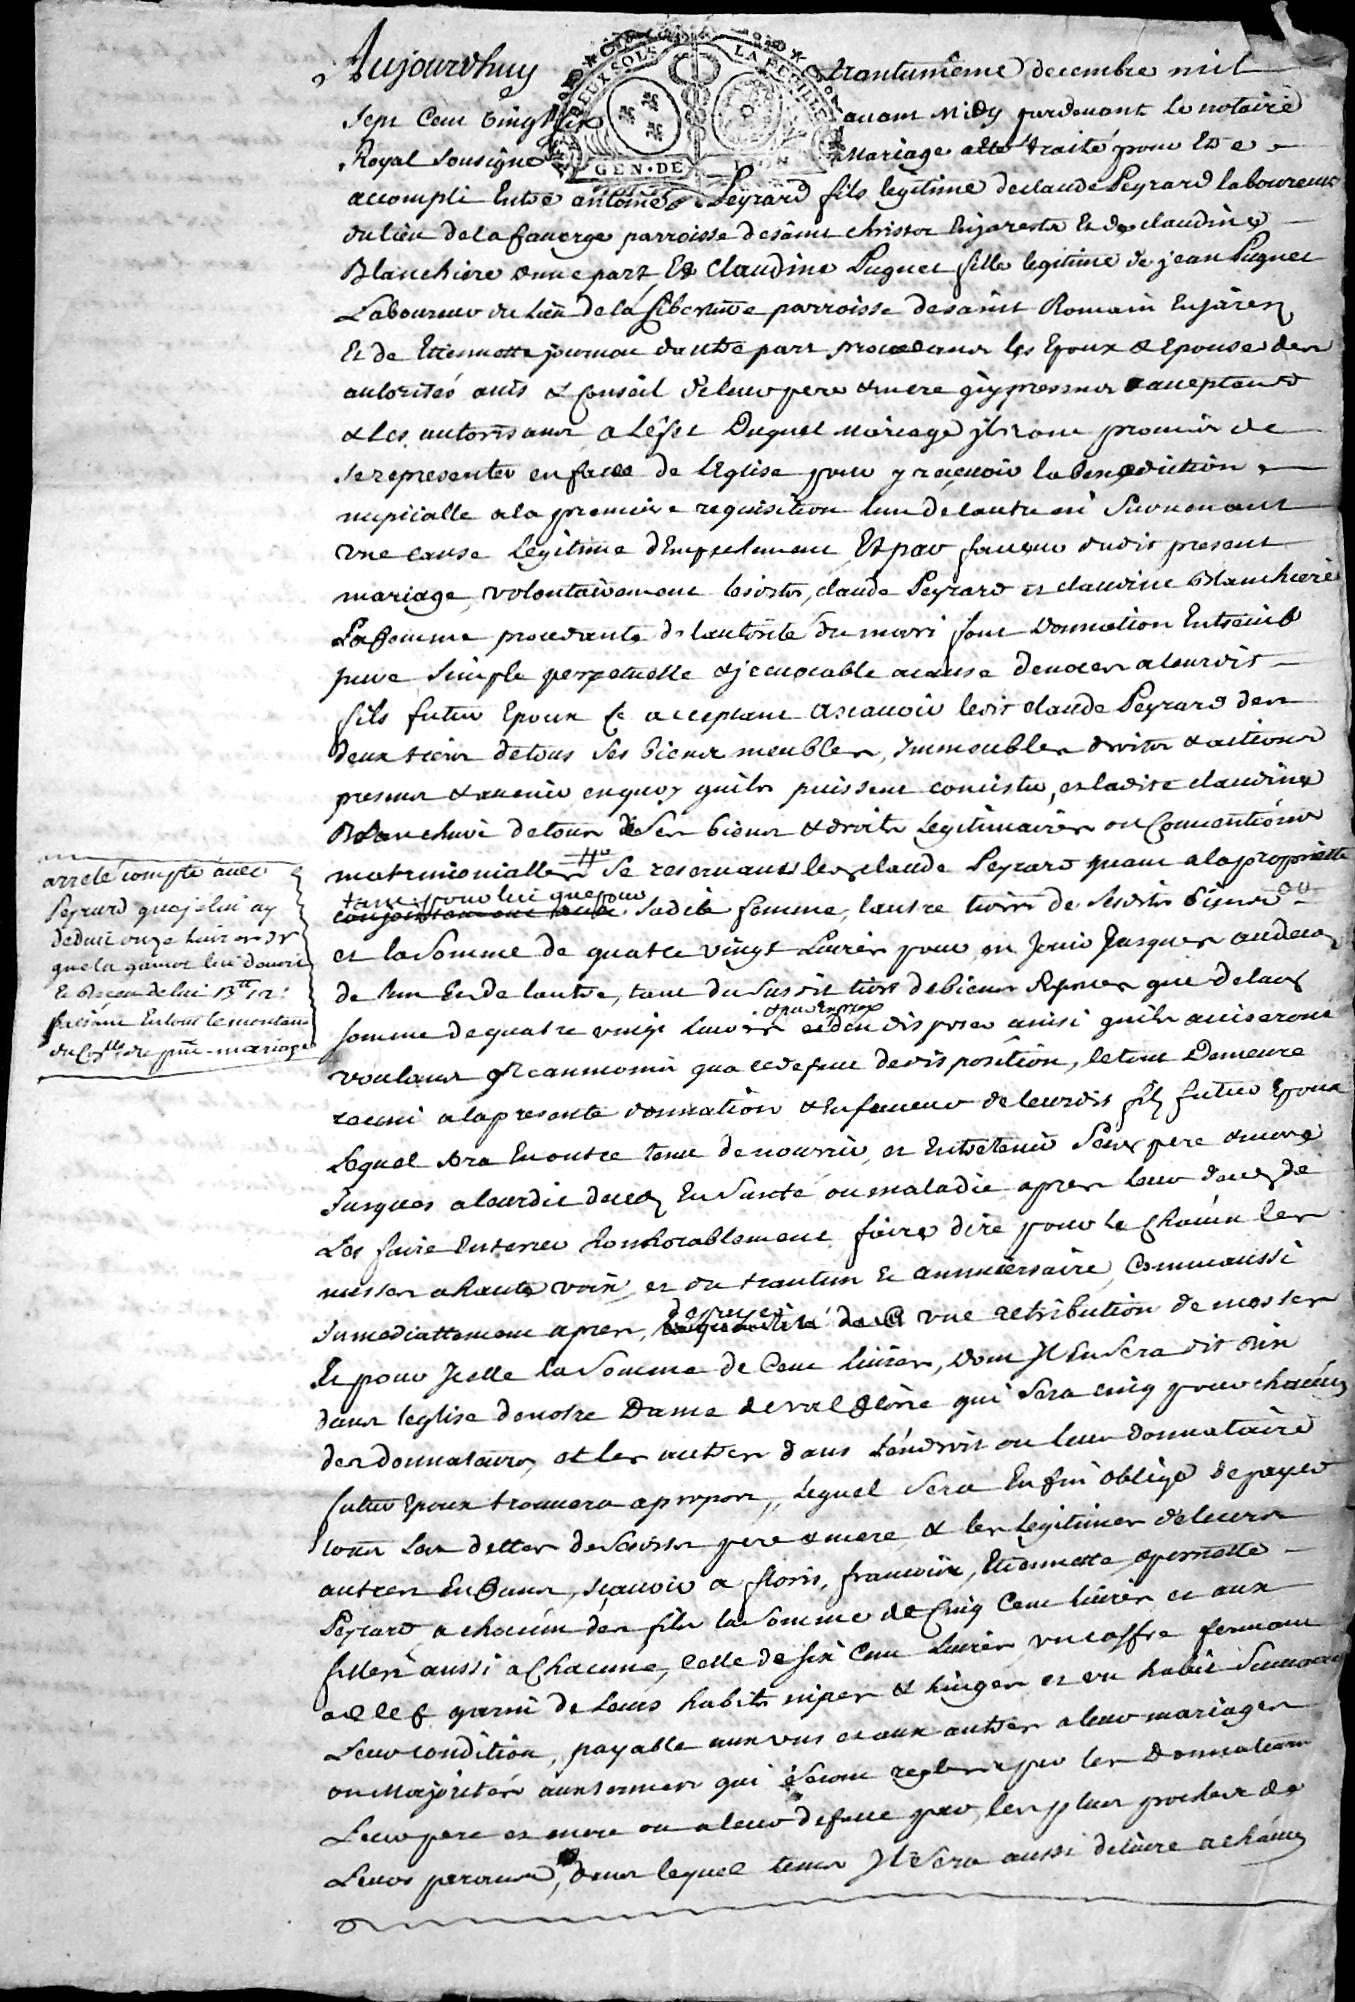 Aujourdhuy trantunième decembre mil
Sept Cent vingt six avant Midy pardevant le notaire
Royal Sousigné Mariage a esté traité pour Estre
accompli Entre antoine Peyrard fils legitime de claude Peyrard laboureur
du lieu de la faverge parroisse de saint christo En jarests Et de claudine
Blanchiere d'une part Et Claudine Pugnet fille legitime de jean Pugnet
Laboureur du lieu de la parroisse de saint Romain En jarez
Et de Etiennette journou d'autre part procedants les Epoux & Epouse des
autorités avis & Conseil de leur pere & mere icy presents & acceptants
& Les autorisants a L'effet Duquel mariage ils ont promis de
se representer en face de L'Eglise pour y recevoir la benediction
nuptialle a la premiere requisition l'un de l'autre ni survenant
une cause Legitime d'Empechement Et par faveur dudit present
mariage, volontairement lesdits, claude Peyrard et claudine Blanchiere
La femme procedante de l'autorité du mari font Donnation Entrevifs
pure simple perpetuelle & irrevocable a cause de noces a leurdit
fils futur Epoux Ce acceptant Ascavoir ledit claude Peyrard des
deux tiers de tous ses biens meubles, Immeubles droits & actions
presents & a venir en quoy qu'ils puissent concister, et ladite claudine
Blanchere de tous Ses biens & droits Legitimaires ou Conventions
matrimonialles Se reservants led claude Peyrard quant a la proprietté
tant pour lui que pour
sadite femme, l'autre tiers de sesdits biens
et la Somme de quatre vingt Livres pour en Jouir Jusques au deces
de l'un Et de l'autre, tant du Susdit tiers de biens Reservés que de lad
somme de quatre vingt livres et d'en disposer ainsi quils aviseront
voulants Neanmoins qu'a deffaut de disposition, le tout Demeure
reuni a la presente donnation & En faveur de leurdit fils futur Epoux
Lequel sera En outre tenu de nourrir, et Entretenir Sesd pere & mere
Jusques a leurdit deces En Santé ou maladie apres leur deces de
Les faire Enterrer honnorablement faire dire pour le Chacun les
messes a haute voix, et du trantun & anniversaire, Comm'aussi
Immediattement apres, de payer une retribution de messes
Et pour Icelle la Somme de Cent livres, Dont Il En Sera dit dix
dans leglise de notre Dame de valfleurie qui Sera cinq pour chacun
des Donnateurs, et les autres dans L'endroit ou leur donnataire
futur Epoux trouvera apropos, Lequel Sera Enfin obligé de payer
tous Les dettes de Sesdits pere & mere & les Legitimes de leurs
autres Enfans, sçavoir a floris, francoise, Etiennette & pernette
Peyrard, a chacun des fils la Somme de Cinq Cent livres et aux
filles aussi a Chacune, Celle de six Cent Livres, un coffre fermant
a clef garni de leurs habits nipes & linges et un habit Suivant
Leur condition, payable aux uns et aux autres a leur mariages
ou Majorités aux termes qui Seront reglés par les Donnateurs
Leur pere et mere ou a leur deffaut par les plus proches de
Leurs parents, dans lequel tems Il Sera aussi delivré a chacun
arreté compte avec
Peyrard que je lui ay
deduit onze livres
Et Receu de lui 13tt 12s